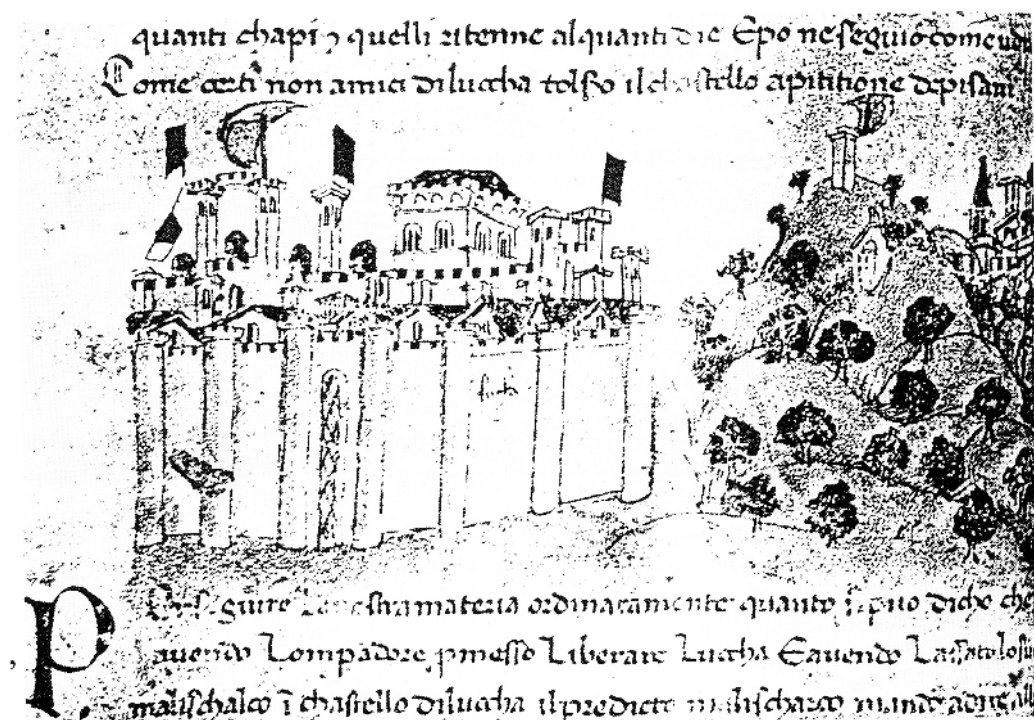 quanti chapi ꝫ quelli ritenne alquanti die Epo ne seguio come
Come certi non amici diluccha tolseo il chastello apititione depisani
P seguire la nostra materia ordinatamente quanto si puo dicho che
avendo Lompadore pmesso Liberare Luccha Eavendo Lassato losu
malischalco ī chastello diluccha ilpredicto malischalco mando